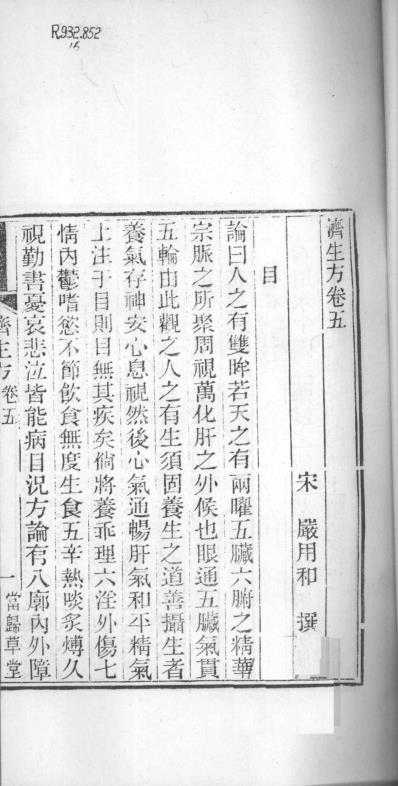 R932.852
濟生方卷五
宋 嚴用和 撰
目
論曰人之有雙眸若天之有兩曜五臟六腑之精華
宗脈之所聚周視萬化肝之外候也眼通五臟氣貫
五輪由此觀之人之有生須固養生之道善攝生者
養氣存神安心息視然後心氣通暢肝氣和平精氣
上注于目則目無其疾矣倘將養乖理六淫外傷七
情內鬱嗜慾不節飲食無度生食五辛熱啖炙煿久
視勤書憂哀悲泣皆能病目況方論有八廓內外障
濟生方 卷五
一 當歸草堂